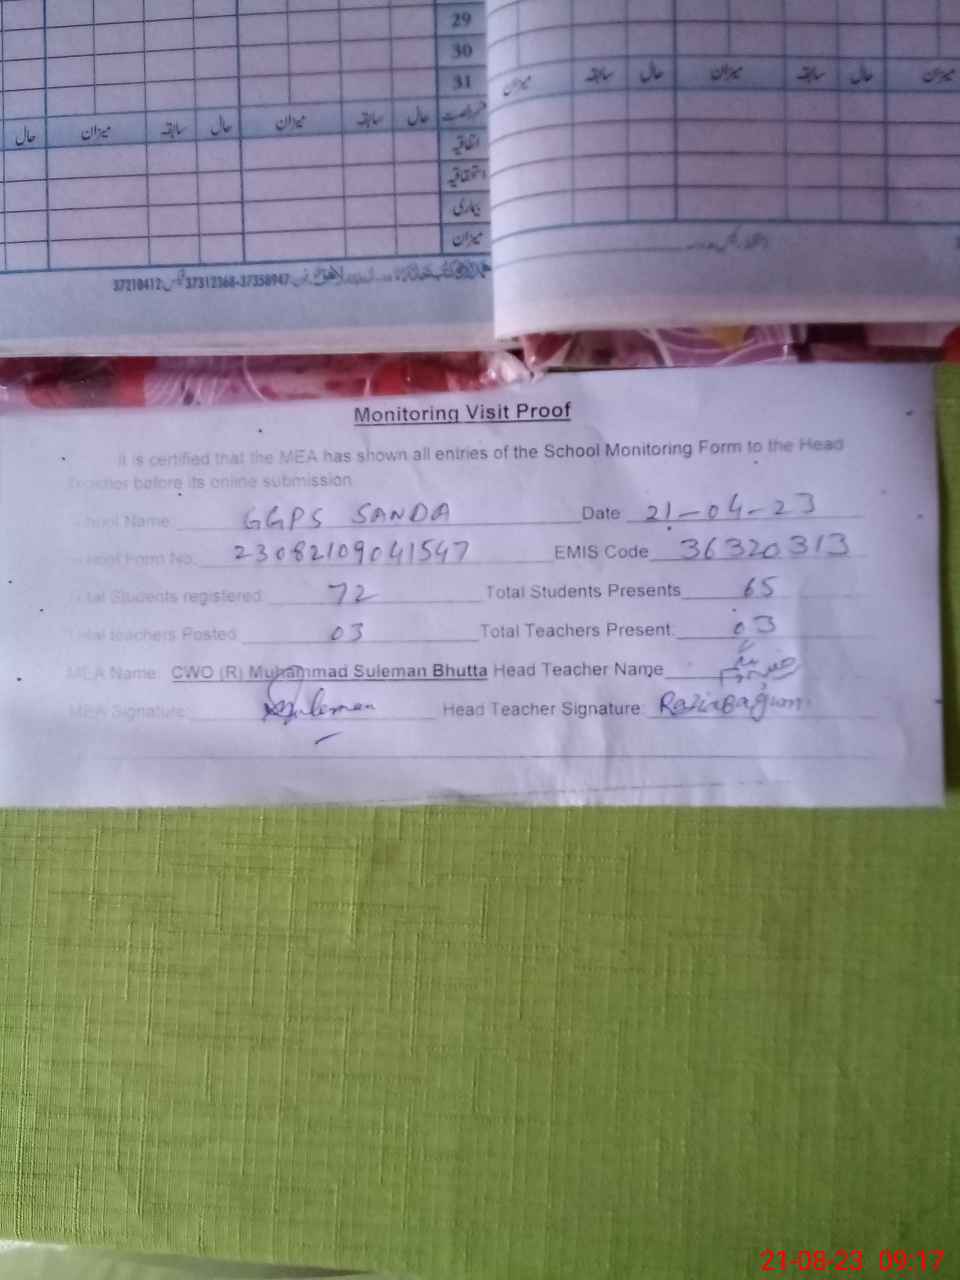 29
30
31
حال میزان سابقہ حال میزان سابقہ حال
میزان سابقہ حال میزان سابقہ حال میزان
اتفاقیہ
استحقاقیہ
بیماری
میزان
37210412 37312368-37358947
Monitoring Visit Proof
It is certified that the MEA has shown all entries of the School Monitoring Form to the Head
Teacher before its online submission
School Name: GGPS SANDA Date 21-04-23
School Form No. 23082109041547 EMIS Code 36320313
Total Students registered: 72 Total Students Presents 65
Total teachers Posted 03 Total Teachers Present: 03
MEA Name: CWO (R) Muhammad Suleman Bhutta Head Teacher Name
MEA Signature: Suleman Head Teacher Signature: RaziaBagum
21-08-23 09:17